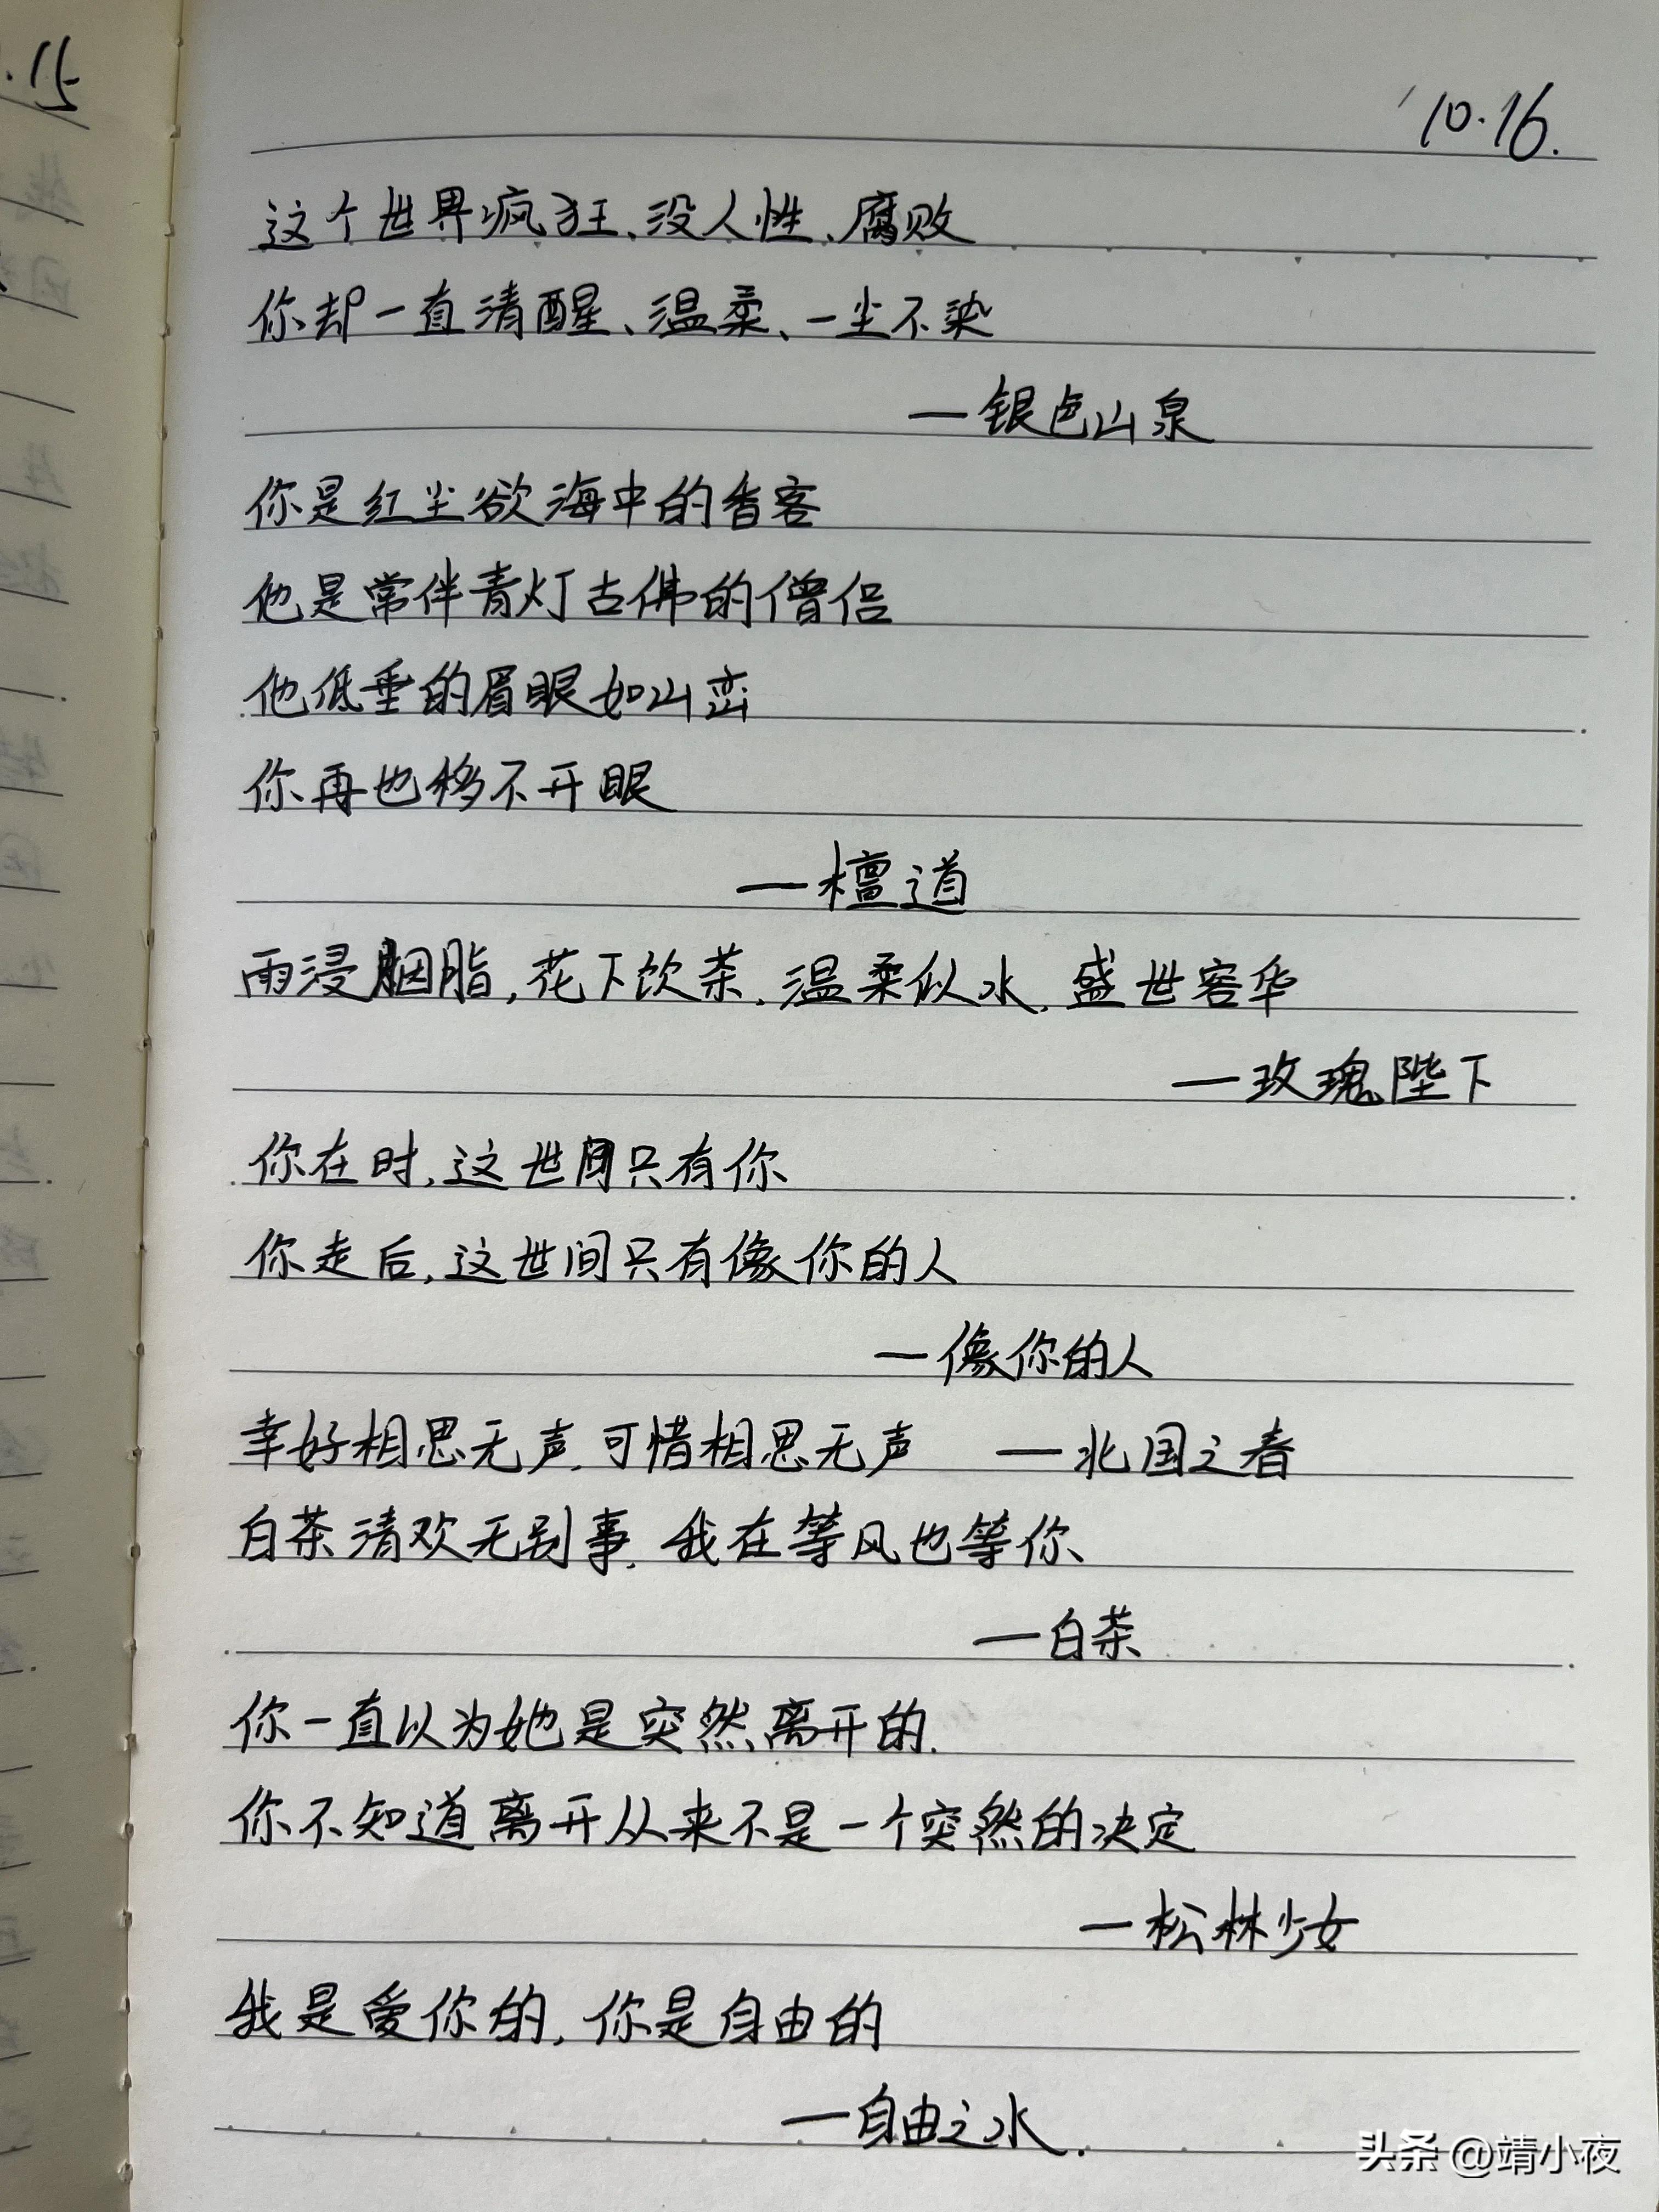 .15
10.16.
这个世界疯狂、没人性、腐败
你却一直清醒、温柔、一尘不染
—银色山泉
你是红尘欲海中的香客
他是常伴青灯古佛的僧侣
他低垂的眉眼如山峦
你再也移不开眼
—檀道
雨浸胭脂,花下饮茶,温柔似水,盛世容华
—玫瑰陛下
你在时,这世间只有你
你走后,这世间只有像你的人
—像你的人
幸好相思无声,可惜相思无声 —北国之春
白茶清欢无别事,我在等风也等你、
—白茶
你一直以为她是突然离开的.
你不知道离开从来不是一个突然的决定
—松林少女
我是爱你的,你是自由的
—自由之水.
头条@靖小夜